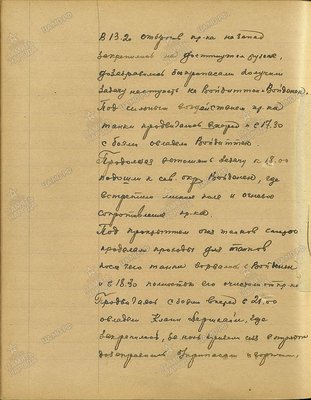 В 13.20 отбросив пр-ка на запад
закрепились на достигнутом рубеже,
дозаправились боеприпасами получили
задачу наступать на Войдиттен, Войданен.
Под сильным воздействием пр-ка
танки продвигались вперед и с 17.30
с боями овладели Войдиттен.
Продолжая выполнять задачу к 18.00
подошли к сев. окр. Войданен, где
встретили минное поле и огневое
сопротивление пр-ка.
Под прикрытием огня танков саперы
проделали проходы для танков
после чего танки ворвались в Войданен
и в 18.30 полностью его очистили от пр-ка
Продвигаясь с боями вперед с 21.00
овладели Клайн, где
закрепились,
дозаправились боеприпасами и горючим.